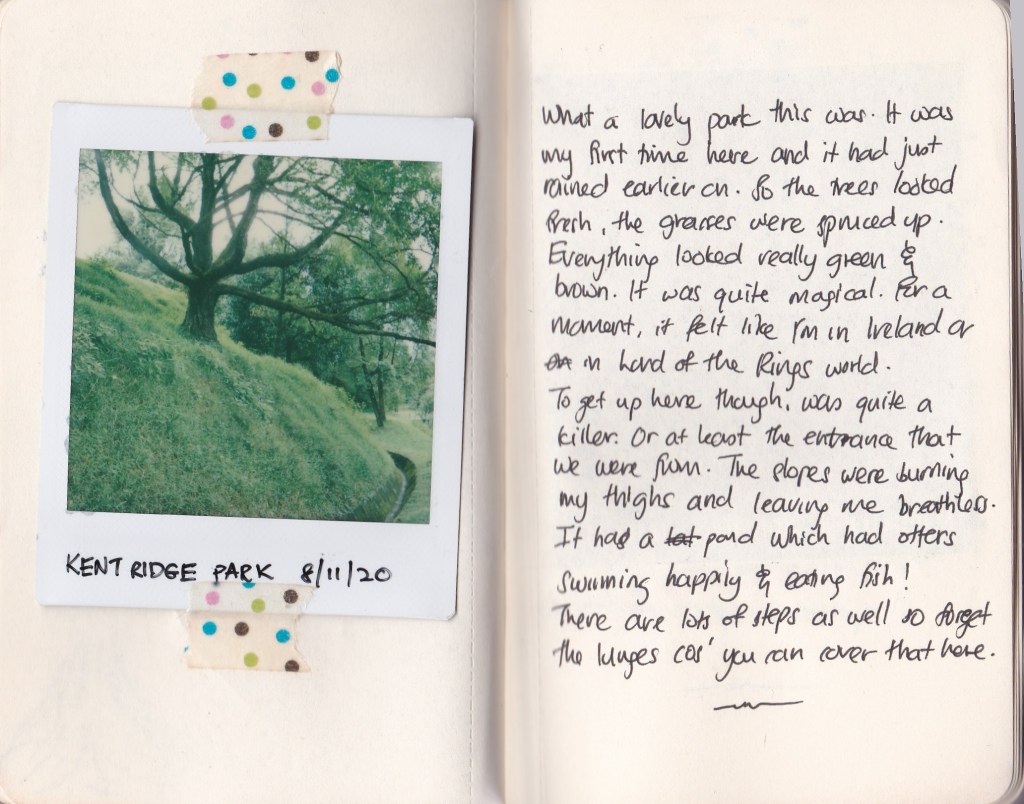 KENT RIDGE PARK 8/11/20
What a lovely park this was. It was
my first time here and it had just
rained earlier on. So the trees looked
fresh, the grasses were spruced up.
Everything looked really green &
brown. It was quite magical. For a
moment, it felt like I'm in Ireland or
in Lord of the Rings world.
To get up here though, was quite a
killer. Or at least the entrance that
we were from. The slopes were burning
my thighs and leaving me breathless.
It had a pond which had otters
swimming happily & eating fish!
There are lots of steps as well so forget
the lunges cos' you can cover that here.